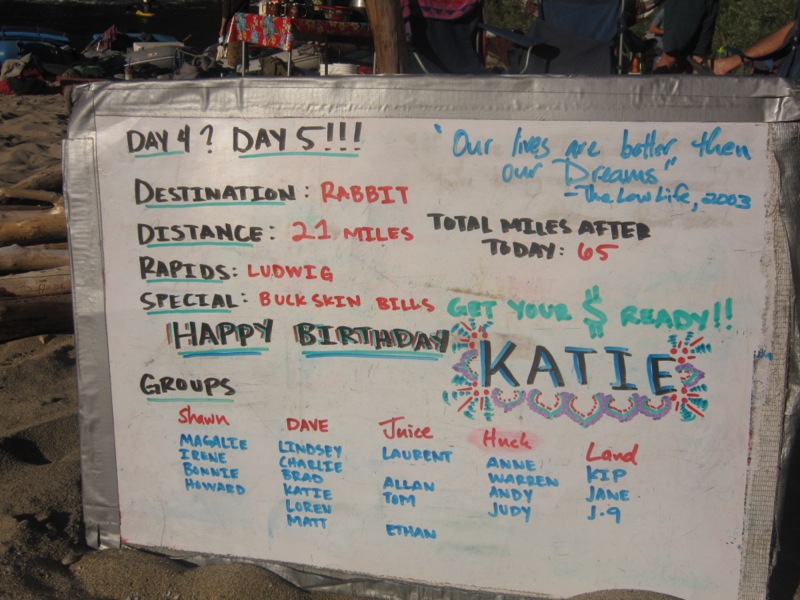 DAY 4? DAY 5!!!
"Our lives are better then
our Dreams"
- The Low Life, 2003
DESTINATION: RABBIT
DISTANCE: 21 MILES
TOTAL MILES AFTER
TODAY: 65
RAPIDS: LUDWIG
SPECIAL: BUCKSKIN BILLS GET YOUR $ READY!!
HAPPY BIRTHDAY KATIE
GROUPS
Shawn DAVE Juice Huck Land
MAGALIE LINDSEY LAURENT ANNE KIP
IRENE CHARLIE WARREN JANE
BONNIE BRAD ALLAN ANDY J-9
HOWARD KATIE TOM JUDY
LOREN
MATT ETHAN